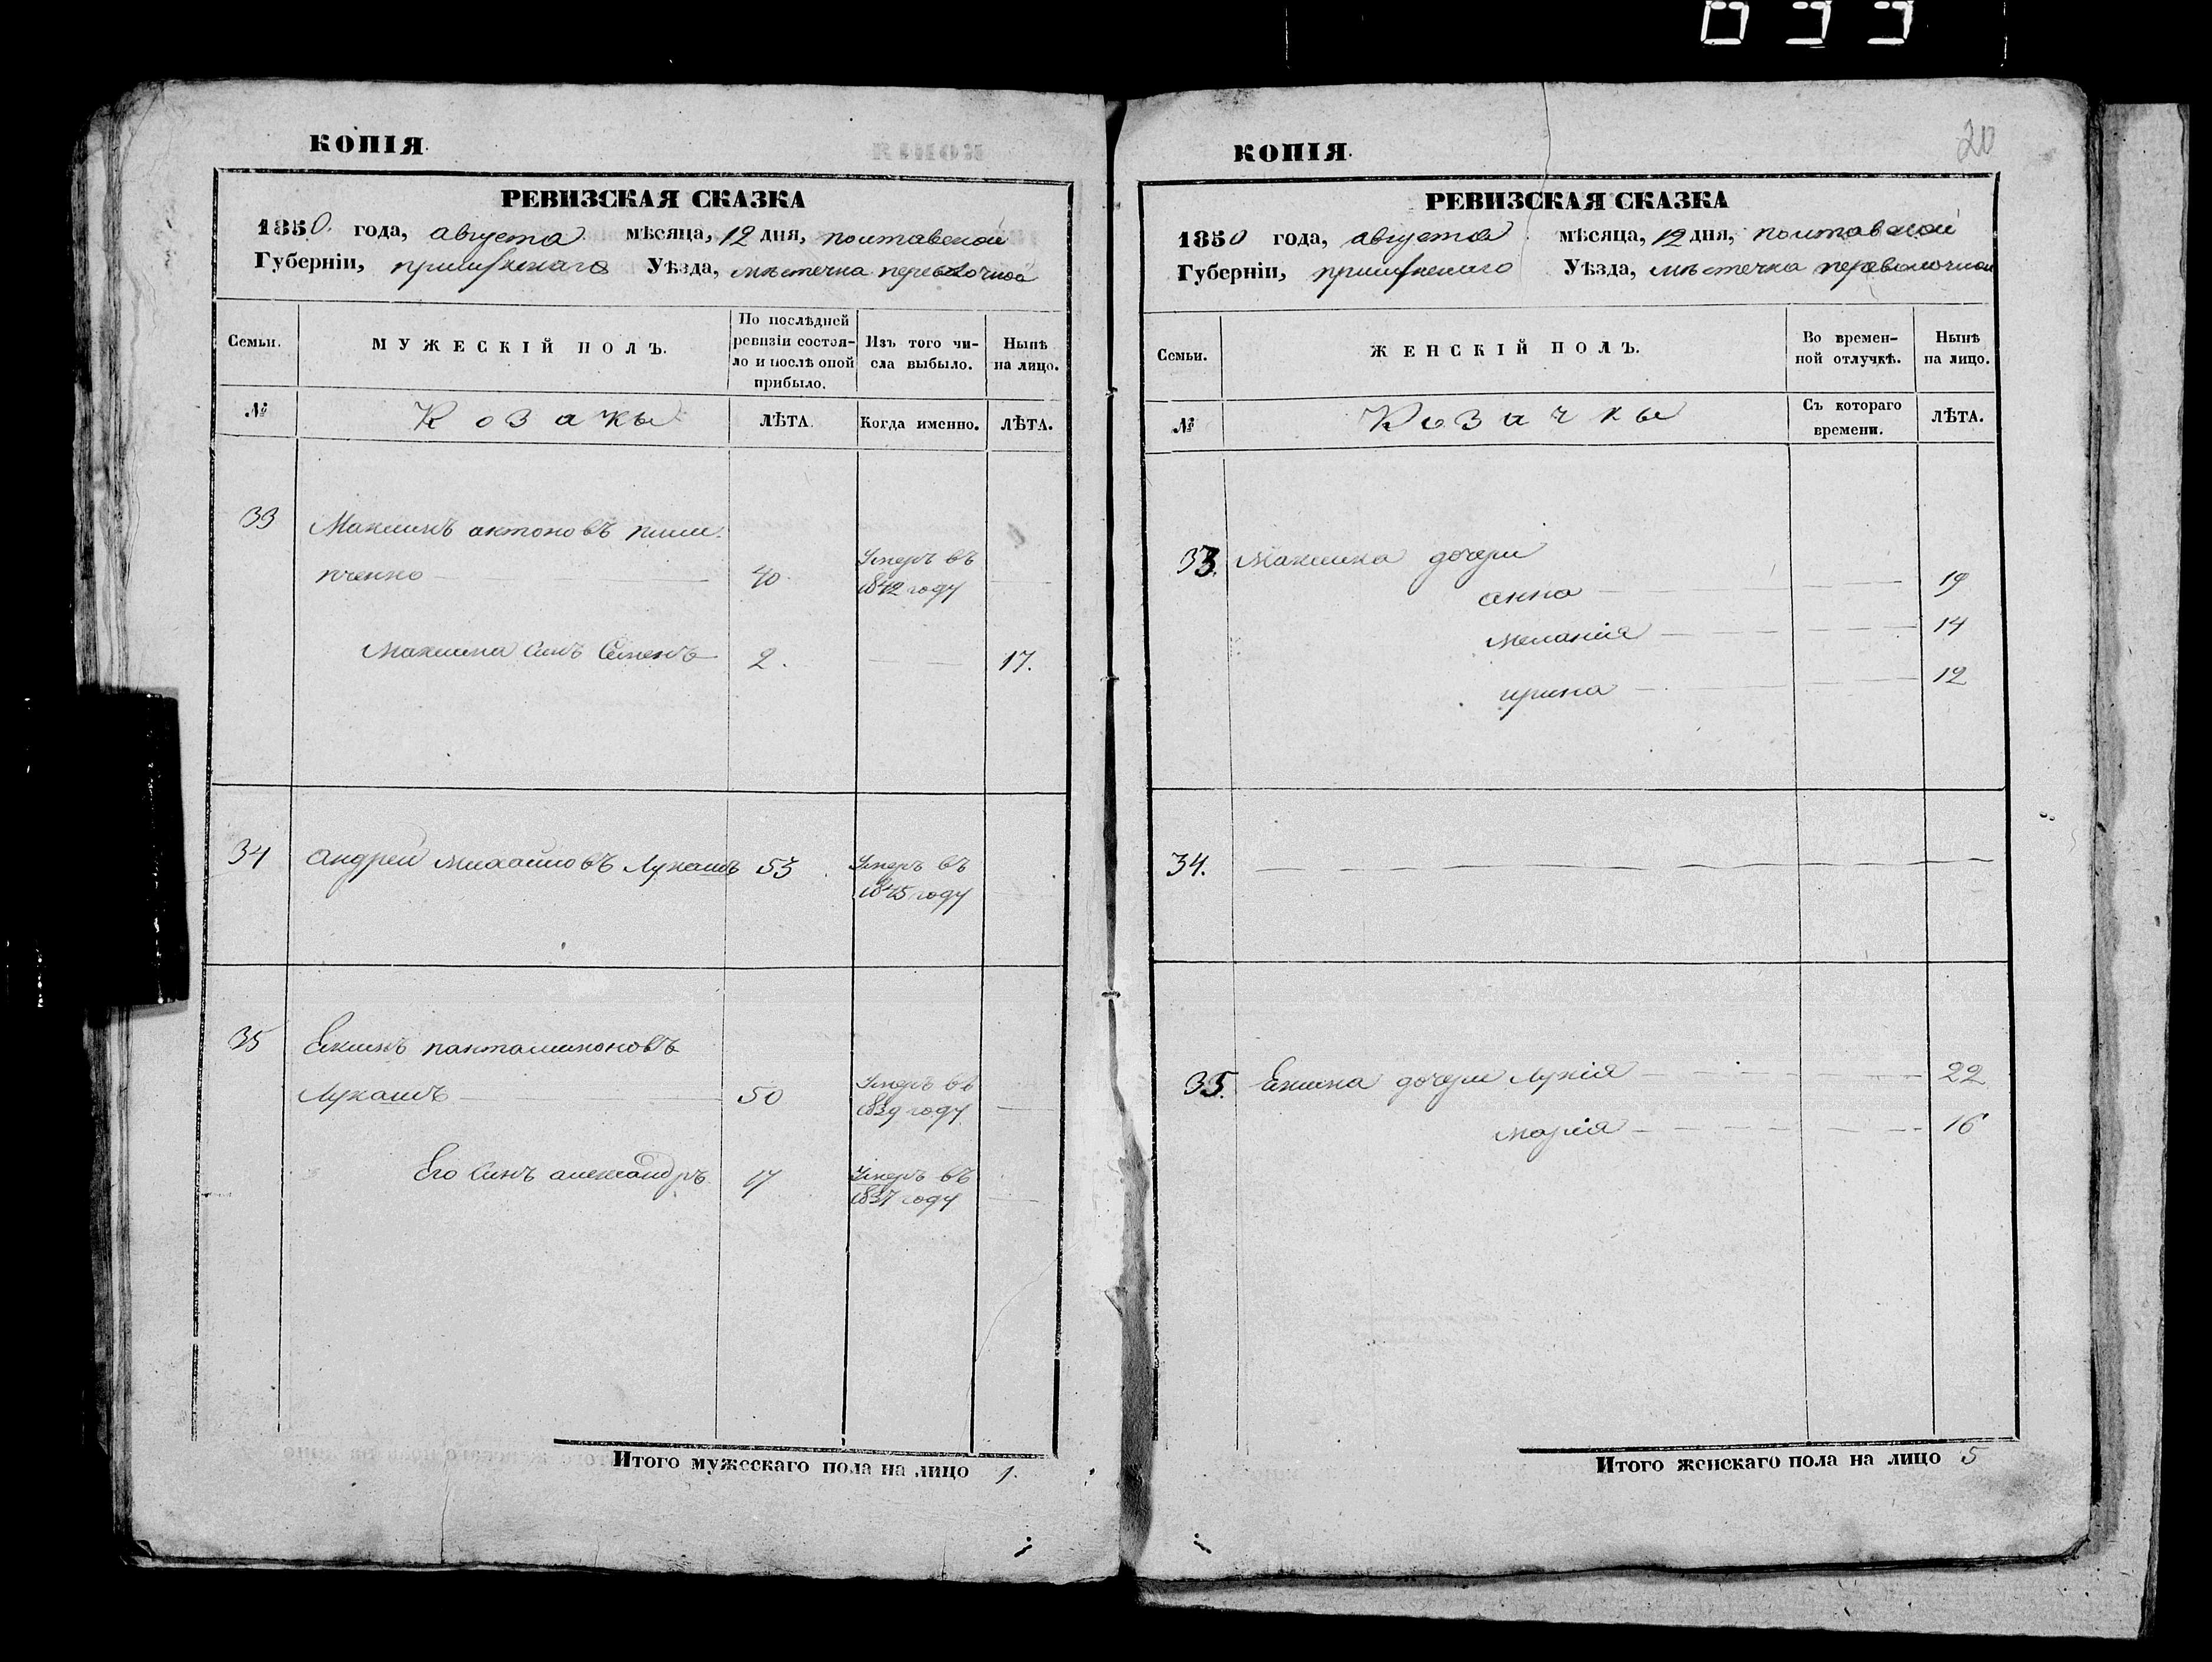 КОПІЯ.
РЕВИЗСКАЯ СКАЗКА
1850. года, августа мѣсяца, 12 дня, полтавской
Губерніи, прилуцкаго Уѣзда, мѣстечка переволочной
Семьи.
МУЖЕСКІЙ ПОЛЪ.
По послѣдней
ревизіи состоя-
ло и послѣ оной
прибыло.
Изъ того чи-
сла выбыло.
Нынѣ
на лицо.
№
Козаки
ЛѢТА.
Когда именно.
ЛѢТА.
33
Максимъ антоновъ
пченко
40
Умеръ въ
1842 году
Максима Синъ Семенъ
2.
17.
34
андрей михайловъ Лукашъ
53
Умеръ въ
1845 году
35
Екимъ панталимоновъ
Лукашъ
50
Умеръ въ
1839 году
Его Синъ александръ
17
Умеръ въ
1837 году
Итого мужескаго пола на лицо 1.
20
КОПІЯ.
РЕВИЗСКАЯ СКАЗКА
1850 года, августа мѣсяца, 12 дня, полтавской
Губерніи, прилуцкаго Уѣзда, мѣстечка переволочной
Семьи.
ЖЕНСКІЙ ПОЛЪ.
Во времен-
ной отлучкѣ.
Нынѣ
на лицо.
№
Козачки
Съ котораго
времени.
ЛѢТА.
33. Максима дочери
анна 19
меланія 14
ирина 12
34.
35. Екима дочери Лукія 22
марія 16
Итого женскаго пола на лицо 5